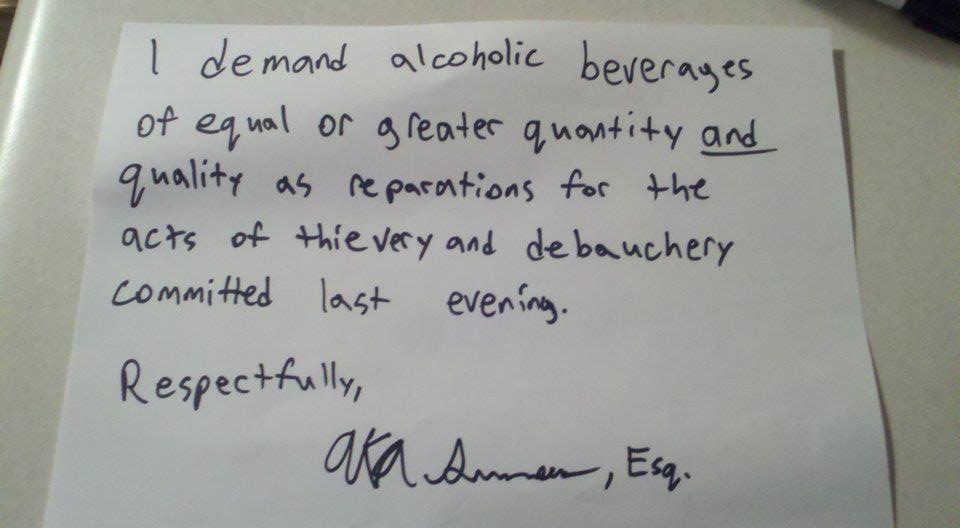 I demand alcoholic beverages
of equal or greater quantity and
quality as reparations for the
acts of thievery and debauchery
committed last evening.
Respectfully,
, Esq.